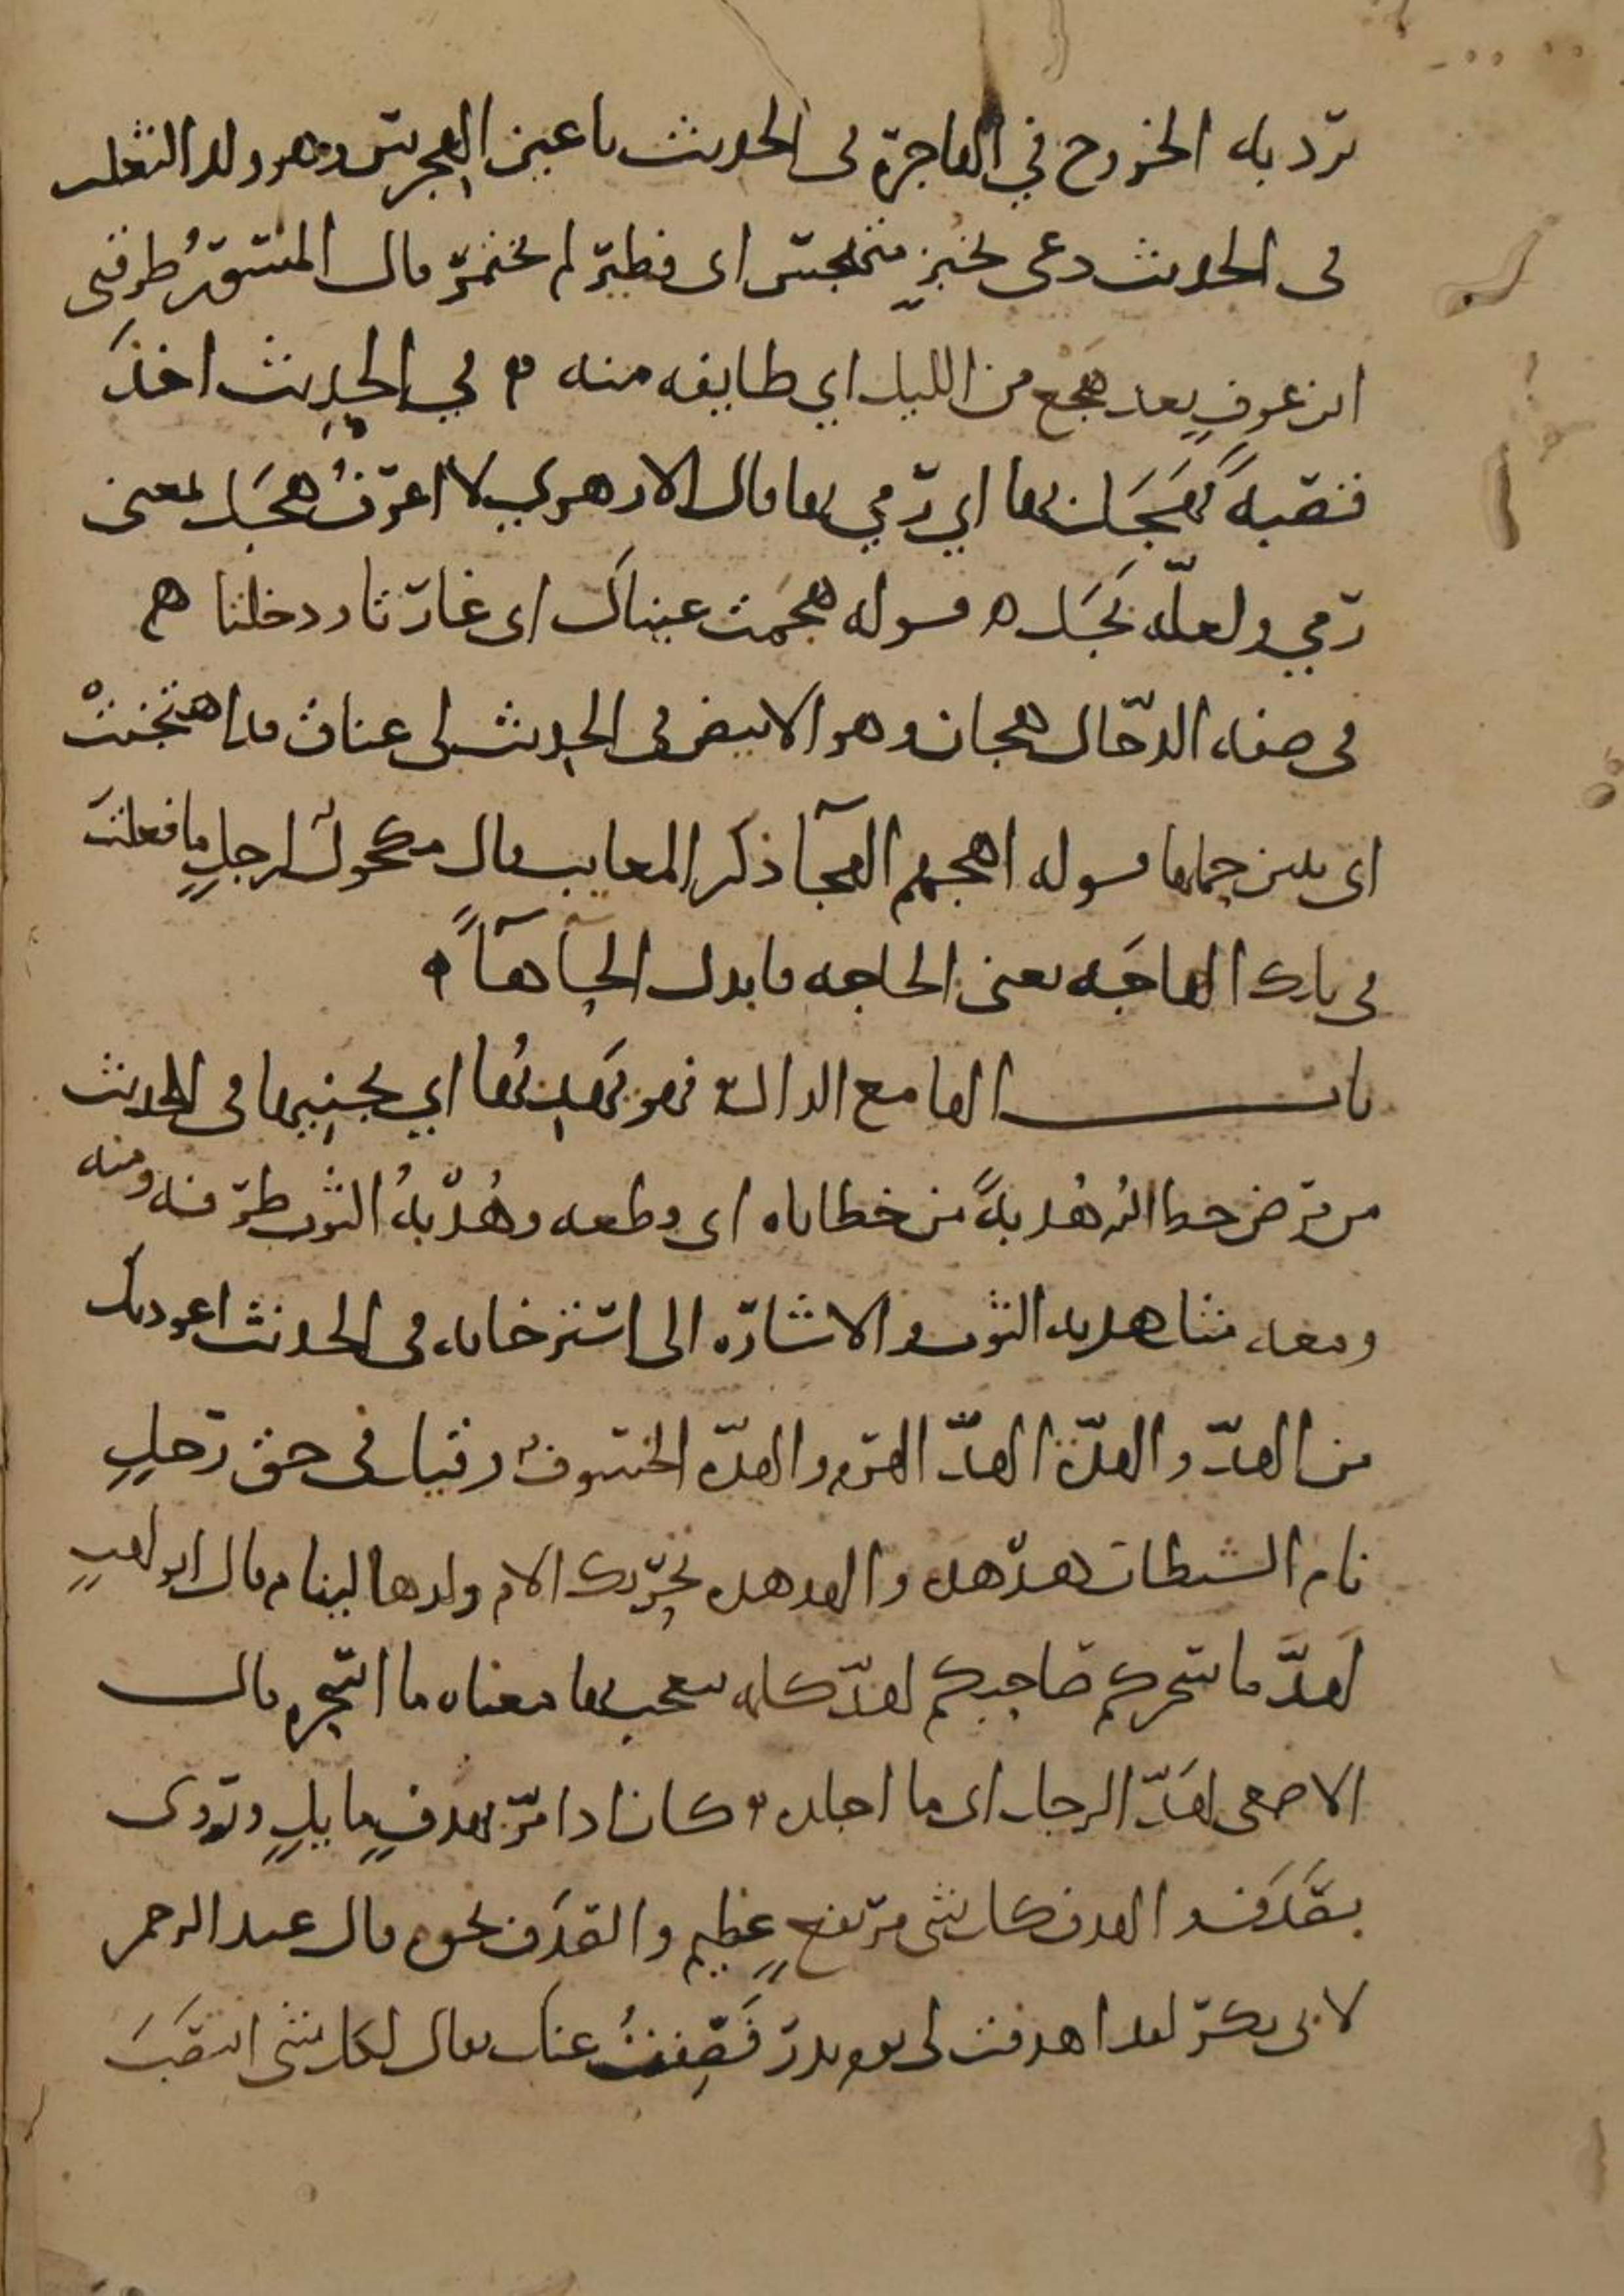 يرد به الخروج في الهاجرة في الحديث يا عين الهجرس وهو ولد الثعلب
في الحديث دعى بخبز متهجس اى فطير لم يختمر قال المسور طرقني
ابن عوف بعد هجع من الليل اي طايفه منه في الحديث اخذ
قصبة فهجل بها اي رمي بها قال الازهري لا اعرف هجل بمعنى
رمي ولعله نجل قوله هجمت عيناك اى غارتا ودخلتا
في صفه الدجال هجان وهو الابيض في الحديث لى عناق قد اهتجنت
اى تبين حملها قوله اهجهم الهجآ ذكر المعايب قال مكحول لرجل ما فعلت
في تلك الهاجه يعنى الحاجه فابدل الحآ هآ
باب الها مع الدال فهو يهدبها اي يجنيها في الحديث
من مرض حط الله هدبة من خطاياه اى قطعه وهدبة الثوب طرفه ومنه
ومعه مثل هدبه الثوب والاشارة الى استرخايه في الحديث اعوذ بك
من الهد والهدة الهد الهدم والهدة الخسوف وقيل في حق رجل
نام الشيطان هدهده والهدهده تحريك الام ولدها لينام قال ابو لهب
لهد ما سحركم صاحبكم لهد كلمه يتعجب بها معناه ما اسحره قال
الاصمعى لهد الرجل اى ما اجلده كان اذا مر بهدف مايل ويروى
بصدف والهدف كل شى مرتفع عظيم والصدف نحوه قال عبد الرحمن
لابى بكر لقد اهدفت لى يوم بدر فصفت عنك يقال لكل شى انتصب